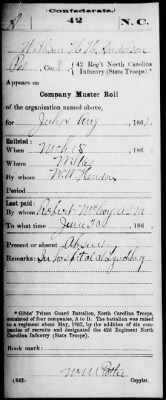 (Confederate.)
42 N.C.
William H. H. Anderson
Co. 42 Reg't North Carolina
Infantry (State Troops).*
Appears on
Company Muster Roll
of the organization named above,
for July & Aug, 186
Enlisted:
When Mch 18, 186
Where
By whom W. W.
Period
Last paid:
By whom Robert
To what time June 30, 186
Present or absent Absent
Remarks: In hospital at Lynchburg
*Gibbs' Prison Guard Battalion, North Carolina Troops,
consisted of four companies, A to D. The battalion was raised
to a regiment about May, 1862, by the addition of six com-
panies of recruits and designated the 42d Regiment North
Carolina Infantry (State Troops).
Book mark:
(642)
Copyist.